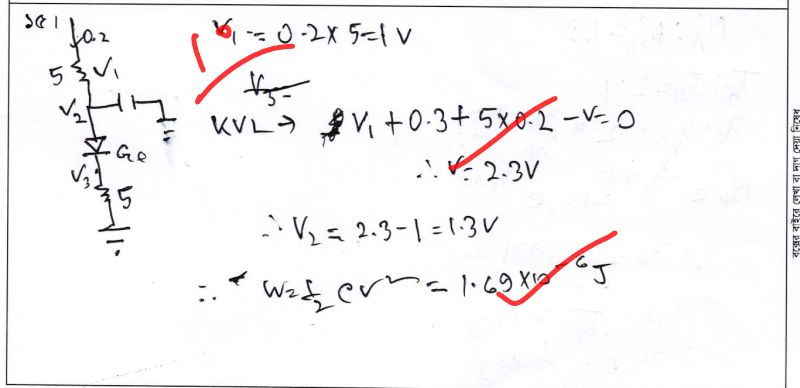 0.2
5 V₁
V₂
Ge
V₃
5
V₁ = 0.2 x 5 = 1 V
V₃ =
KVL → V₁ + 0.3 + 5 x 0.2 - V = 0
∴ V = 2.3V
∴ V₂ = 2.3 - 1 = 1.3V
∴ W = ½ CV² = 1.69 x 10⁻⁶ J
বক্সের বাইরে লেখা বা দাগ দেয়া নিষেধ